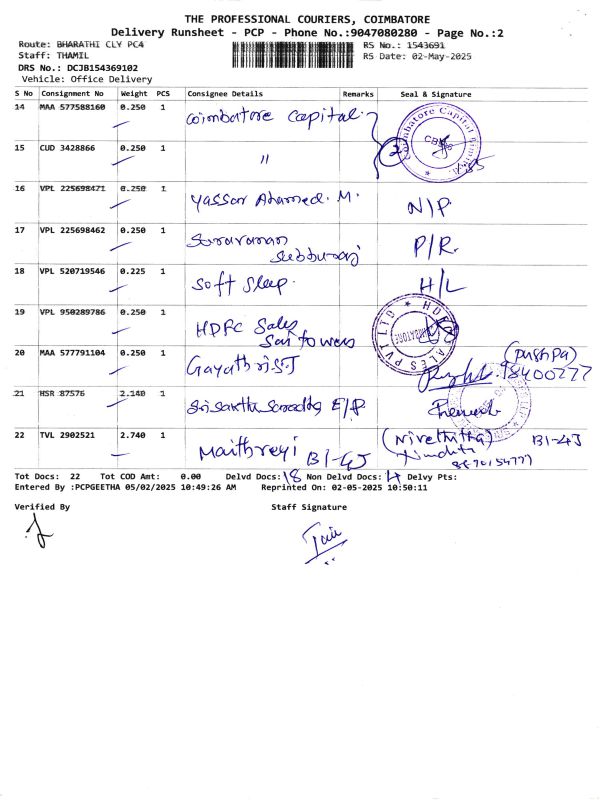 THE PROFESSIONAL COURIERS, COIMBATORE
Delivery Runsheet - PCP - Phone No.:9047080280 - Page No.:2
Route: BHARATHI CLY PC4 RS No.: 1543691
Staff: THAMIL RS Date: 02-May-2025
DRS No.: DCJB154369102
Vehicle: Office Delivery
S No Consignment No Weight PCS Consignee Details Remarks Seal & Signature
14 MAA 577588160 0.250 1 Coimbatore Capital
15 CUD 3428866 0.250 1 〃 2
16 VPL 225698471 0.250 1 Yassar Ahamed. M. N/P.
17 VPL 225698462 0.250 1 Saravanan Subburaj P/R.
18 VPL 520719546 0.225 1 Soft Sleep. H/L
19 VPL 950289786 0.250 1 HDFC Sales Sai Towers
20 MAA 577791104 0.250 1 Gayathri.S.J (Pushpa)
21 HSR 87576 2.140 1 E/P.
22 TVL 2902521 2.740 1 Maithreyi B1-4J (Nivethitha) B1-4J
Tot Docs: 22 Tot COD Amt: 0.00 Delvd Docs: 18 Non Delvd Docs: 4 Delvy Pts:
Entered By :PCPGEETHA 05/02/2025 10:49:26 AM Reprinted On: 02-05-2025 10:50:11
Verified By Staff Signature